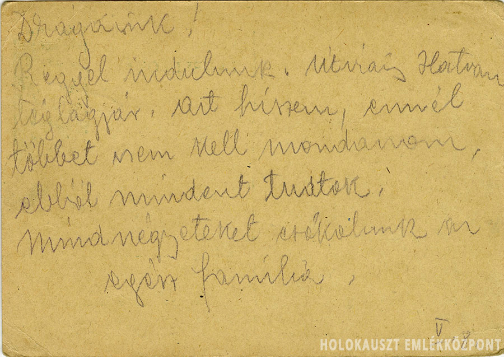 Drágáink!
Reggel indulunk. Útirány Hatvan
téglagyár. Azt hiszem, ennél
többet nem kell mondanom,
ebből mindent tudtok.
Mindnégyeteket csókolunk az
egész família.
V
HOLOKAUSZT EMLÉKKÖZPONT